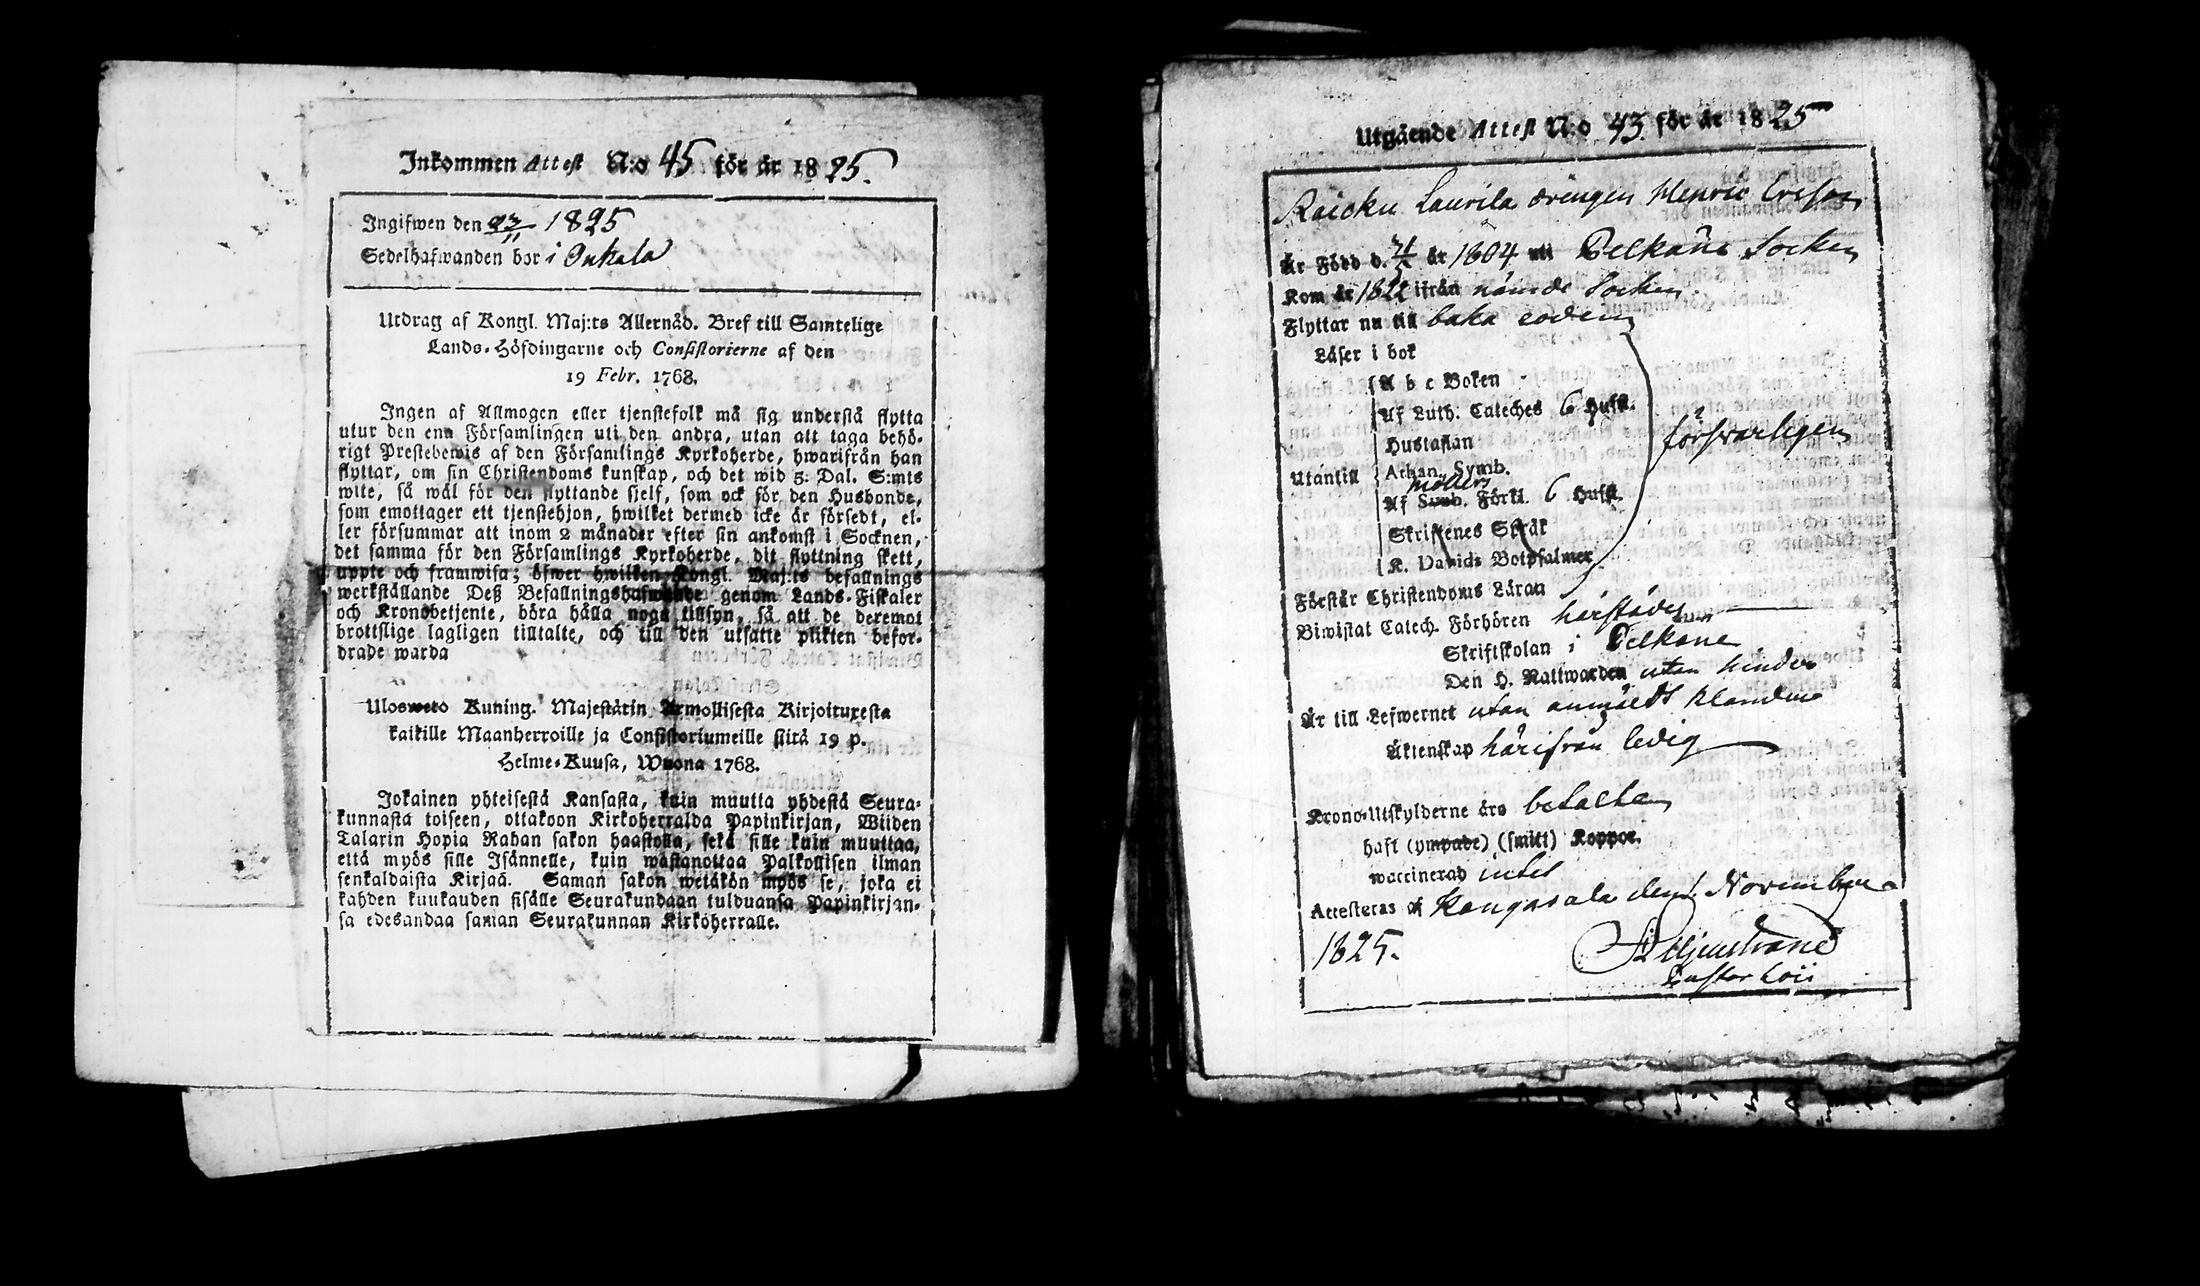 Inkommen Attest N:o 45 för år 1825.
Ingifwen den 27/11 1825
Sedelhafwanden bor i Onkala
Utdrag af Kongl. Maj:ts Allernåd. Bref till Samtelige
Lands-Höfdingarne och Consistorierne af den
19 Febr. 1768.
Ingen af Allmogen eller tjenstefolk må sig understå flytta
utur den ena Församlingen uti den andra, utan att taga behö-
rigt Prestebewis af den Församlings Kyrkoherde, hwarifrån han
flyttar, om sin Christendoms kunskap, och det wid 5: Dal. S:mts
wite, så wäl för den flyttande sjelf, som ock för den Husbonde,
som emottager ett tjenstehjon, hwilket dermed icke är försedt, el-
ler försummar att inom 2 månader efter sin ankomst i Socknen,
det samma för den Församlings Kyrkoherde, dit flyttning skett,
uppte och framwisa; öfwer hwilken Kongl. Maj:ts befallnings
werkställande Deß Befallningshafwande genom Lands-Fiskaler
och Kronobetjente, böra hålla noga tillsyn, så att de deremot
brottslige lagligen tilltalte, och till den utsatte plikten befor-
drade warda
Uloswето Kuning. Majestätin Armollisesta Kirjoituxesta
kaikille Maanherroille ja Consistoriumeille siitä 19 p.
Helme-Kuusa, Wuona 1768.
Jokainen yhteisestä Kansasta, kuin muutta yhdestä Seura-
kunnasta toiseen, ottakoon Kirkoherralda Papinkirjan, Wiiden
Talarin Hopia Rahan sakon haastolla, sekä sille kuin muuttaa,
että myös sille Isännelle, kuin wastanottaa Palkollisen ilman
senkaldaista Kirjaa. Saman sakon wetäkön myös se, joka ei
kahden kuukauden sisälle Seurakundaan tulduansa Papinkirjan-
sa edesandaa saman Seurakunnan Kirkoherralle.
Utgående Attest N:o 43 för år 1825
Raicku Laurila drengen Henric Ericsson
Är Född d. år 1804 uti Pelkäne Socken
Kom år 1822 ifrån nämde Socken
Flyttar nu till baka eodem
Läser i bok
A b c Boken
Af Luth. Cateches 6 Hufst.
Hustaflan
Utantill
Athan. Symb.
möllers
Af Symb. Förkl. 6 Hufst.
Skriftenes Språk
K. Davids Botpsalmer
försvarligen
Förstår Christendoms Läran
Biwistat Catech. Förhören härstädes
Skriftskolan i Pelkäne
Den H. Nattwarden utan hinder
Är till Lefwernet utan anmäldt klander
Äktenskap härifrån ledig
Krono-Utskylderne äro betalta
haft (ympade) (smitt) Koppor.
waccinerad intet
Attesteras af Kangasala den 1 November
1825.